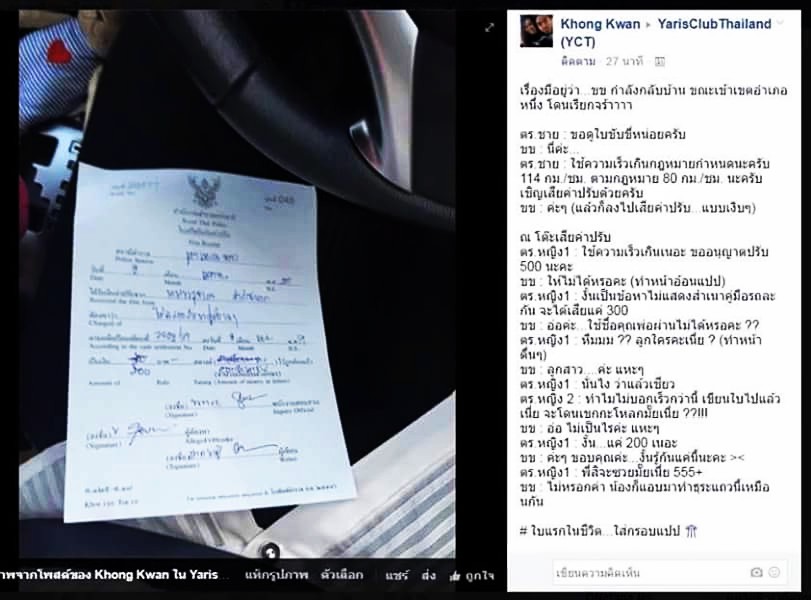 Khong Kwan ▸ YarisClubThailand
(YCT)
ติดตาม · 27 นาที ·
เรื่องมีอยู่ว่า...ขข กำลังกลับบ้าน ขณะเข้าเขตอำเภอ
หนึ่ง โดนเรียกจร้าาาา
ตร.ชาย : ขอดูใบขับขี่หน่อยครับ
ขข : นี่ค่ะ...
ตร.ชาย : ใช้ความเร็วเกินกฎหมายกำหนดนะครับ
114 กม./ชม. ตามกฎหมาย 80 กม./ชม. นะครับ
เชิญเสียค่าปรับด้วยครับ
ขข : ค่ะๆ (แล้วก็ลงไปเสียค่าปรับ...แบบเงิบๆ)
ณ โต๊ะเสียค่าปรับ
ตร.หญิง1 : ใช้ความเร็วเกินเนอะ ขออนุญาตปรับ
500 นะคะ
ขข : ให้ไม่ได้หรอคะ (ทำหน้าอ้อนแปป)
ตร.หญิง1 : งั้นเป็นข้อหาไม่แสดงสำเนาคู่มือรถละ
กัน จะได้เสียแค่ 300
ขข : อ๋อค่ะ...ใช้ชื่อคุณพ่อผ่านไม่ได้หรอคะ ??
ตร.หญิง1 : หืมมม ?? ลูกใครคะเนี่ย ? (ทำหน้า
ตื่นๆ)
ขข : ลูกสาว....ค่ะ แหะๆ
ตร.หญิง1 : นั่นไง ว่าแล้วเชียว
ตร.หญิง 2 : ทำไมไม่บอกเร็วกว่านี้ เขียนใบไปแล้ว
เนี่ย จะโดนเขกกะโหลกมั้ยเนี่ย ??!!!
ขข : อ๋อ ไม่เป็นไรค่ะ แหะๆ
ตร.หญิง1 : งั้น...แค่ 200 เนอะ
ขข : ค่ะๆ ขอบคุณค่ะ...งั้นรู้กันแค่นี้นะคะ ><
ตร.หญิง1 : พี่สิจะซวยมั้ยเนี่ย 555+
ขข : ไม่หรอกค่า น้องก็แอบมาทำธุระแถวนี้เหมือ
นกัน
# ใบแรกในชีวิต...ใส่กรอบแปป
เขียนความคิดเห็น
สำนักงานตำรวจแห่งชาติ
Royal Thai Police
ใบเสร็จรับเงินค่าปรับ
Fine Receipt
สถานีตำรวจ
Police Station
วันที่
Date
เดือน
Month
พ.ศ.
ได้รับเงินค่าปรับจาก
Received the fine from
ต้องหาว่า
Charged of
According to the cash settlement No.
Date
Month
เป็นเงิน
บาท
Amount of
Baht
200
(ลงชื่อ)
(Signature)
พนักงานสอบสวน
Inquiry Official
(ลงชื่อ)
(Signature)
ผู้ต้องหา
Alleged Offender
(ลงชื่อ)
(Signature)
ผู้เขียน
Writer
าพจากโพสต์ของ Khong Kwan ใน Yaris...
แท็กรูปภาพ ตัวเลือก แชร์ ส่ง ถูกใจ